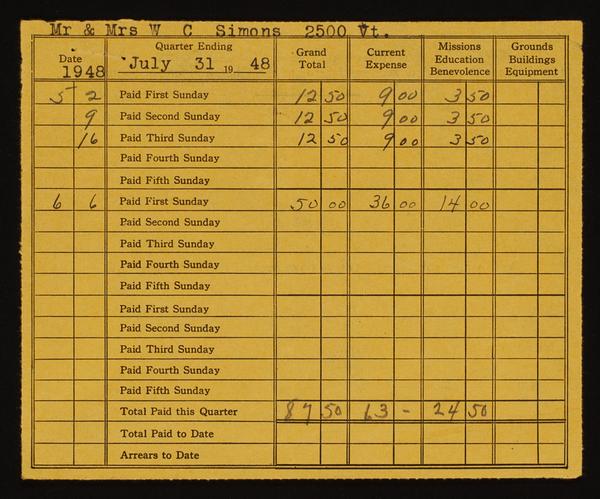 Mr & Mrs W C Simons 2500 Vt.
Date 1948 Quarter Ending July 31 19 48 Grand Total Current Expense Missions Education Benevolence Grounds Buildings Equipment
5 2 Paid First Sunday 12 50 9 00 3 50
9 Paid Second Sunday 12 50 9 00 3 50
16 Paid Third Sunday 12 50 9 00 3 50
Paid Fourth Sunday
Paid Fifth Sunday
6 6 Paid First Sunday 50 00 36 00 14 00
Paid Second Sunday
Paid Third Sunday
Paid Fourth Sunday
Paid Fifth Sunday
Paid First Sunday
Paid Second Sunday
Paid Third Sunday
Paid Fourth Sunday
Paid Fifth Sunday
Total Paid this Quarter 87 50 63 - 24 50
Total Paid to Date
Arrears to Date